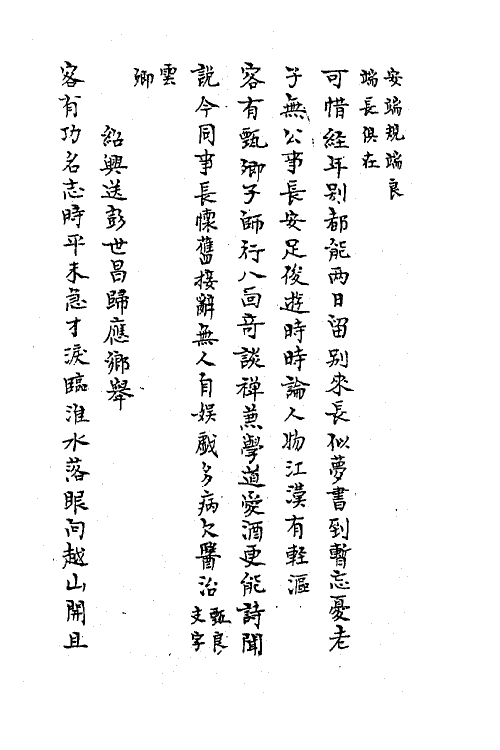 安端規端良
端長俱在
可惜經年别都能两日留别來長似夢書到暫忘憂老
子無公事長安足俊遊時時論人物江漠有輕漚
客有甄卿子師行八面奇談禅蕙學道愛酒更能詩聞
說今同事長懷舊接辭無人自娱戯多病欠醫治甄良
文字
雲
卿
紹興送彭世昌歸應鄉舉
客有功名志時平未急才淚臨淮水落眼向越山開且